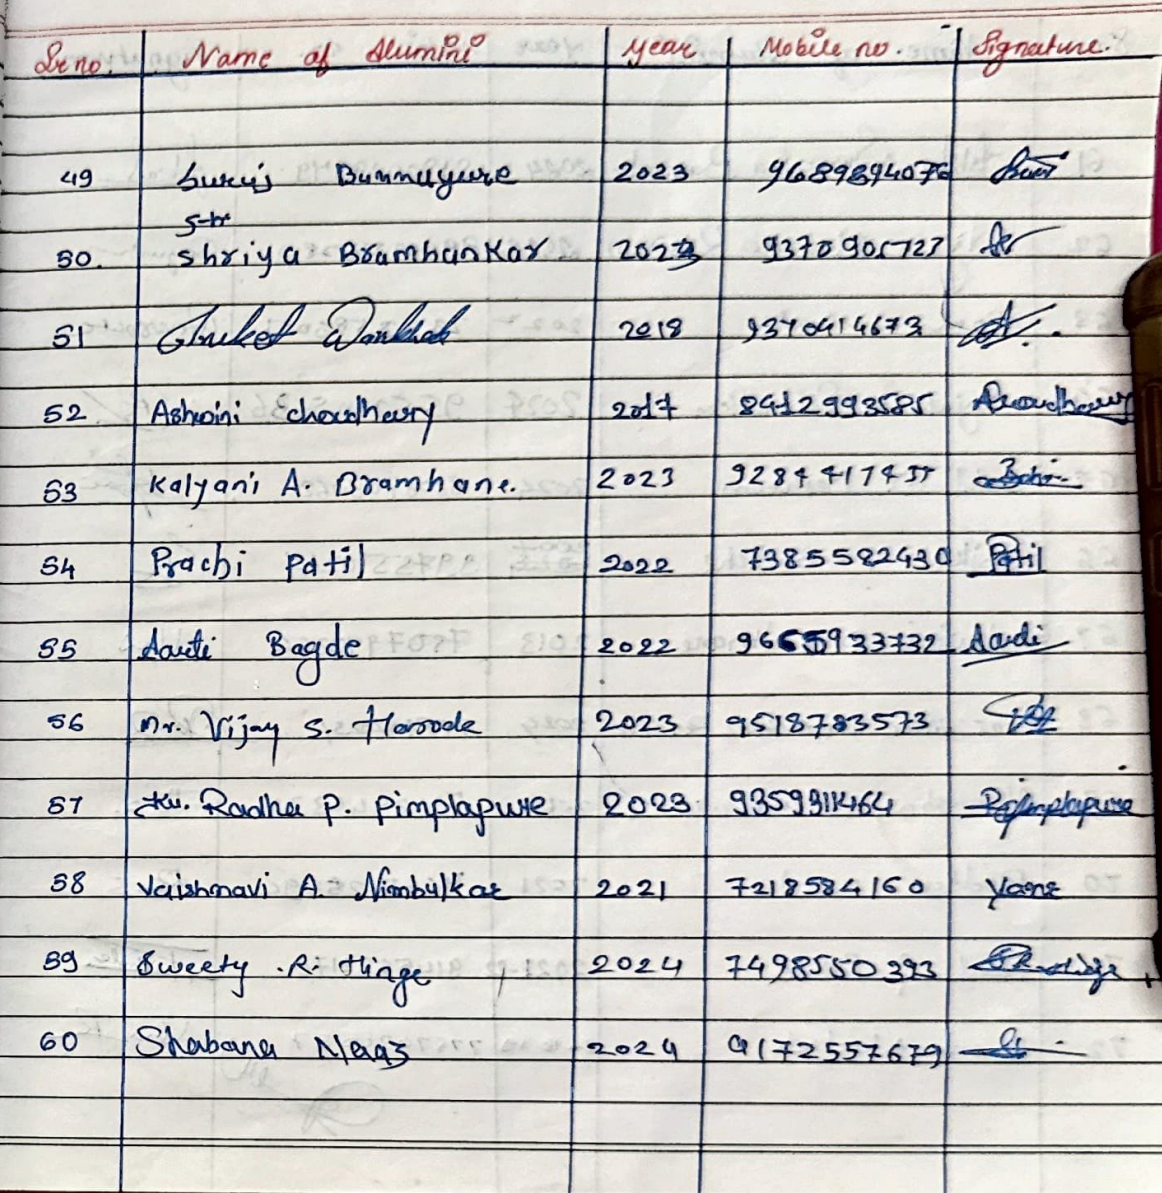 Sr no. Name of Alumini Year Mobile no. Signature.
49 2023
50. Shriya Bramhankar 2023
51 2018 9370414673
52 Ashwini Choudhary 2017 8412993585
53 Kalyani A. Bramhane. 2023
54 Prachi Patil 2022 7385582430 Patil
55 Aarti Bagde 2022 9665933732
56 Mr. Vijay S. Harode 2023 9518783573
57 Ku. Radha P. Pimplapure 2023 Pimplapure
58 Vaishnavi A. Nimbulkar 2021 7218584160
59 Sweety R. Hinge 2024 7498550393
60 Shabana Naaz 2024 9172557679